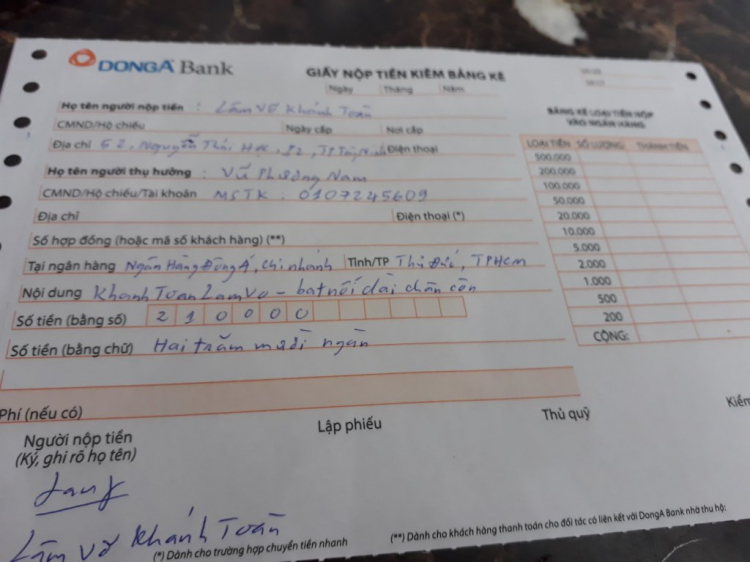 DONGA Bank
GIẤY NỘP TIỀN KIÊM BẢNG KÊ
Ngày Tháng Năm
Họ tên người nộp tiền : Lâm Võ Khánh Toàn
CMND/Hộ chiếu Ngày cấp Nơi cấp
Địa chỉ 52, Nguyễn Thái Học, P2, TP Tây Ninh Điện thoại
Họ tên người thụ hưởng : Vũ Phương Nam
CMND/Hộ chiếu/Tài khoản MSTK : 0107245609
Địa chỉ Điện thoại (*)
Số hợp đồng (hoặc mã số khách hàng) (**)
Tại ngân hàng Ngân Hàng Đông Á, Chi nhánh Tỉnh/TP Thủ Đức, TPHCM
Nội dung KhanhToanLamVo - bat nối dài chân côn
Số tiền (bằng số) 210000
Số tiền (bằng chữ) Hai trăm mười ngàn
Phí (nếu có)
Người nộp tiền Lập phiếu Thủ quỹ Kiểm
(Ký, ghi rõ họ tên)
Lâm Võ Khánh Toàn
(*) Dành cho trường hợp chuyển tiền nhanh
(**) Dành cho khách hàng thanh toán cho đối tác có liên kết với DongA Bank nhờ thu hộ:
BẢNG KÊ LOẠI TIỀN NỘP
VÀO NGÂN HÀNG
LOẠI TIỀN SỐ LƯỢNG THÀNH TIỀN
500.000
200.000
100.000
50.000
20.000
10.000
5.000
2.000
1.000
500
200
CỘNG: